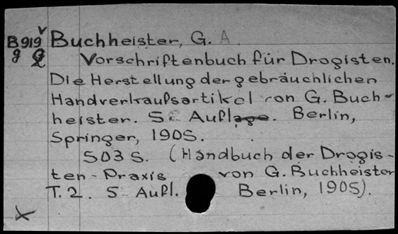 B919 Buchheister, G. A.
g
2 Vorschriftenbuch für Drogisten.
Die Herstellung der gebräuchlichen
Handverkaufsartikel von G. Buch-
heister. 5. Auflage. Berlin,
Springer, 1905.
503 S. (Handbuch der Drogis-
ten-Praxis von G. Buchheister
T. 2. 5. Aufl. Berlin, 1905).